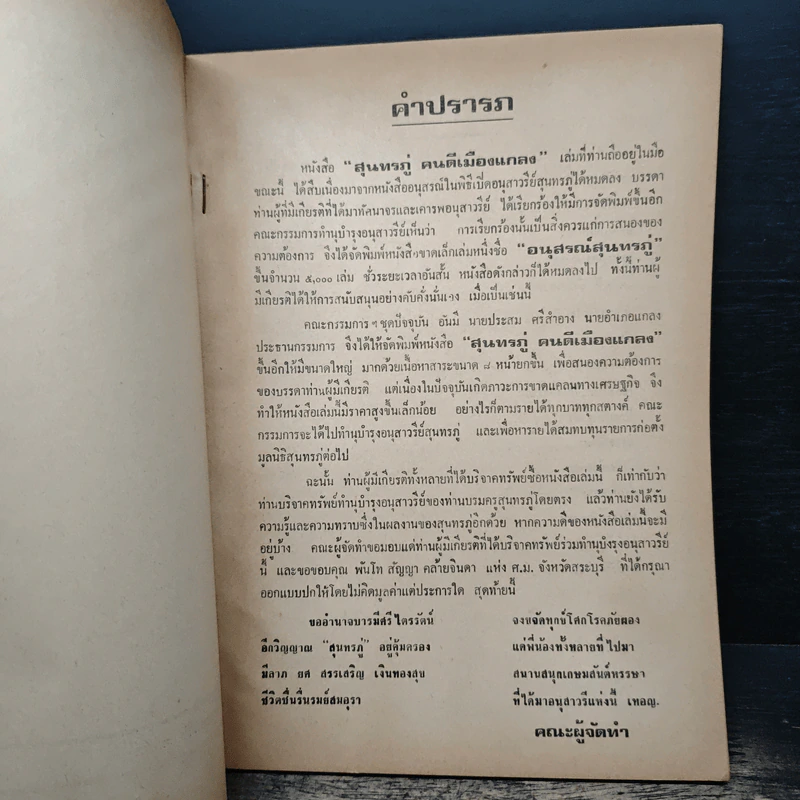 คำปรารภ
หนังสือ "สุนทรภู่ คนดีเมืองแกลง" เล่มที่ท่านถืออยู่ในมือ
ขณะนี้ ได้สืบเนื่องมาจากหนังสืออนุสรณ์ในพิธีเปิดอนุสาวรีย์สุนทรภู่ได้หมดลง บรรดา
ท่านผู้ที่มีเกียรติที่ได้มาทัศนาจรและเคารพอนุสาวรีย์ ได้เรียกร้องให้มีการจัดพิมพ์ขึ้นอีก
คณะกรรมการทำนุบำรุงอนุสาวรีย์เห็นว่า การเรียกร้องนั้นเป็นสิ่งควรแก่การสนองของ
ความต้องการ จึงได้จัดพิมพ์หนังสือขาดเล็กเล่มหนึ่งชื่อ "อนุสรณ์สุนทรภู่"
ขึ้นจำนวน ๕,๐๐๐ เล่ม ชั่วระยะเวลาอันสั้น หนังสือดังกล่าวก็ได้หมดลงไป ทั้งนี้ท่านผู้
มีเกียรติได้ให้การสนับสนุนอย่างคับคั่งนั่นเอง เมื่อเป็นเช่นนี้
คณะกรรมการ ฯ ชุดปัจจุบัน อันมี นายประสม ศรีสำอาง นายอำเภอแกลง
ประธานกรรมการ จึงได้ให้จัดพิมพ์หนังสือ "สุนทรภู่ คนดีเมืองแกลง"
ขึ้นอีกให้มีขนาดใหญ่ มากด้วยเนื้อหาสาระขนาด ๘ หน้ายกขึ้น เพื่อสนองความต้องการ
ของบรรดาท่านผู้มีเกียรติ แต่เนื่องในปัจจุบันเกิดภาวะการขาดแคลนทางเศรษฐกิจ จึง
ทำให้หนังสือเล่มนี้มีราคาสูงขึ้นเล็กน้อย อย่างไรก็ตามรายได้ทุกบาททุกสตางค์ คณะ
กรรมการจะได้ไปทำนุบำรุงอนุสาวรีย์สุนทรภู่ และเพื่อหารายได้สมทบทุนรายการก่อตั้ง
มูลนิธิสุนทรภู่ต่อไป
ฉะนั้น ท่านผู้มีเกียรติทั้งหลายที่ได้บริจาคทรัพย์ซื้อหนังสือเล่มนี้ ก็เท่ากับว่า
ท่านบริจาคทรัพย์ทำนุบำรุงอนุสาวรีย์ของท่านบรมครูสุนทรภู่โดยตรง แล้วท่านยังได้รับ
ความรู้และความทราบซึ่งในผลงานของสุนทรภู่อีกด้วย หากความดีของหนังสือเล่มนี้จะมี
อยู่บ้าง คณะผู้จัดทำขอมอบแต่ท่านผู้มีเกียรติที่ได้บริจาคทรัพย์ร่วมทำนุบำรุงอนุสาวรีย์
นี้ และขอขอบคุณ พันโท สัญญา คล้ายจินดา แห่ง ศ.ม. จังหวัดสระบุรี ที่ได้กรุณา
ออกแบบปกให้โดยไม่คิดมูลค่าแต่ประการใด สุดท้ายนี้
ขออำนาจบารมีศรีไตรรัตน์ จงขจัดทุกข์โศกโรคภัยผอง
อีกวิญญาณ "สุนทรภู่" อยู่คุ้มครอง แด่พี่น้องทั้งหลายที่ไปมา
มีลาภ ยศ สรรเสริญ เงินทองสุข สนานสนุกเกษมสันต์หรรษา
ชีวิตชื่นรื่นรมย์สมอุรา ที่ได้มาอนุสาวรีแห่งนี้ เทอญ.
คณะผู้จัดทำ